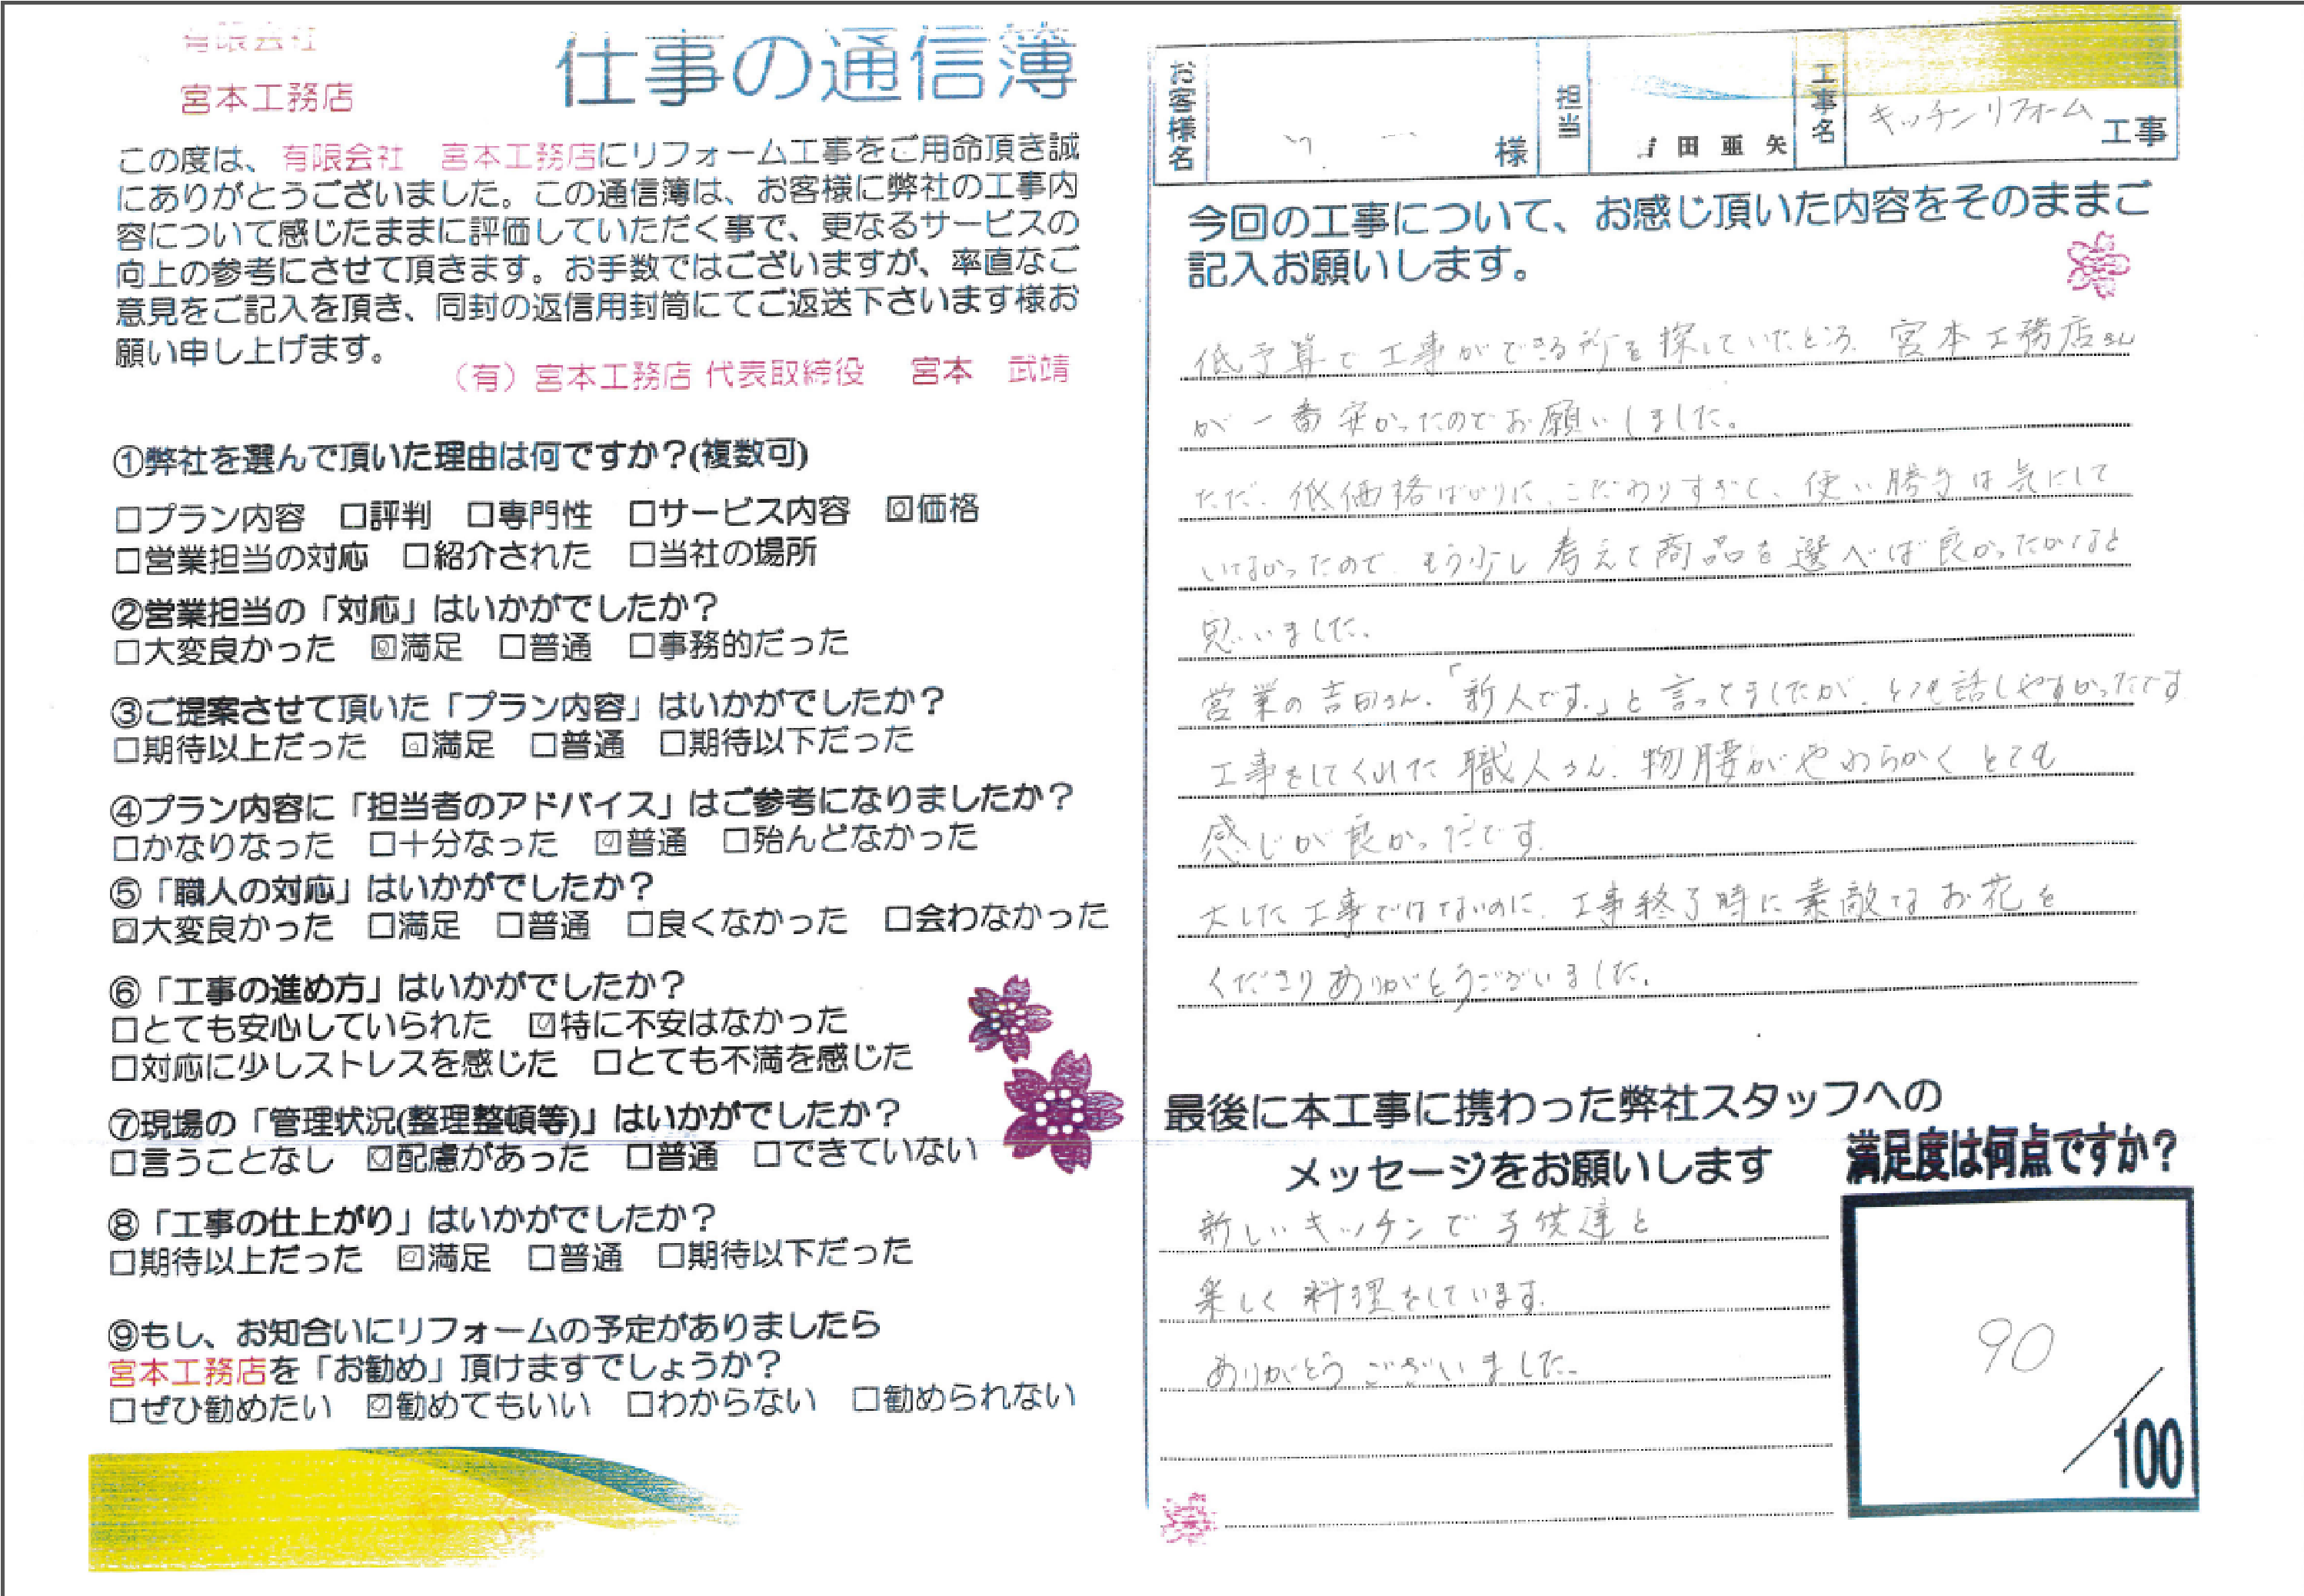 有限会社
宮本工務店
仕事の通信簿
この度は、有限会社 宮本工務店にリフォーム工事をご用命頂き誠
にありがとうございました。この通信簿は、お客様に弊社の工事内
容について感じたままに評価していただく事で、更なるサービスの
向上の参考にさせて頂きます。お手数ではございますが、率直なご
意見をご記入を頂き、同封の返信用封筒にてご返送下さいます様お
願い申し上げます。
（有）宮本工務店 代表取締役 宮本 武靖
①弊社を選んで頂いた理由は何ですか？(複数可)
□プラン内容 □評判 □専門性 □サービス内容 ☑価格
□営業担当の対応 □紹介された □当社の場所
②営業担当の「対応」はいかがでしたか？
□大変良かった ☑満足 □普通 □事務的だった
③ご提案させて頂いた「プラン内容」はいかがでしたか？
□期待以上だった ☑満足 □普通 □期待以下だった
④プラン内容に「担当者のアドバイス」はご参考になりましたか？
□かなりなった □十分なった ☑普通 □殆んどなかった
⑤「職人の対応」はいかがでしたか？
☑大変良かった □満足 □普通 □良くなかった □会わなかった
⑥「工事の進め方」はいかがでしたか？
□とても安心していられた ☑特に不安はなかった
□対応に少しストレスを感じた □とても不満を感じた
⑦現場の「管理状況(整理整頓等)」はいかがでしたか？
□言うことなし ☑配慮があった □普通 □できていない
⑧「工事の仕上がり」はいかがでしたか？
□期待以上だった ☑満足 □普通 □期待以下だった
⑨もし、お知合いにリフォームの予定がありましたら
宮本工務店を「お勧め」頂けますでしょうか？
□ぜひ勧めたい ☑勧めてもいい □わからない □勧められない
お客様名 様 担当 田亜矢 工事名 キッチンリフォーム 工事
今回の工事について、お感じ頂いた内容をそのままご
記入お願いします。
低予算で工事ができる所を探していたところ、宮本工務店さん
が一番安かったのでお願いしました。
ただ、低価格ばかりに、こだわりすぎて、使い勝手は気にして
いなかったので、もう少し考えて商品を選べば良かったかなと
思いました。
営業の吉田さん、「新人です。」と言ってましたが、とても話しやすかったです
工事をしてくれた職人さん、物腰がやわらかくとても
感じが良かったです。
大した工事ではないのに、工事終了時に素敵なお花を
くださりありがとうございました。
最後に本工事に携わった弊社スタッフへの
メッセージをお願いします
新しいキッチンで子供達と
楽しく料理をしています。
ありがとうございました。
満足度は何点ですか？
90
／100